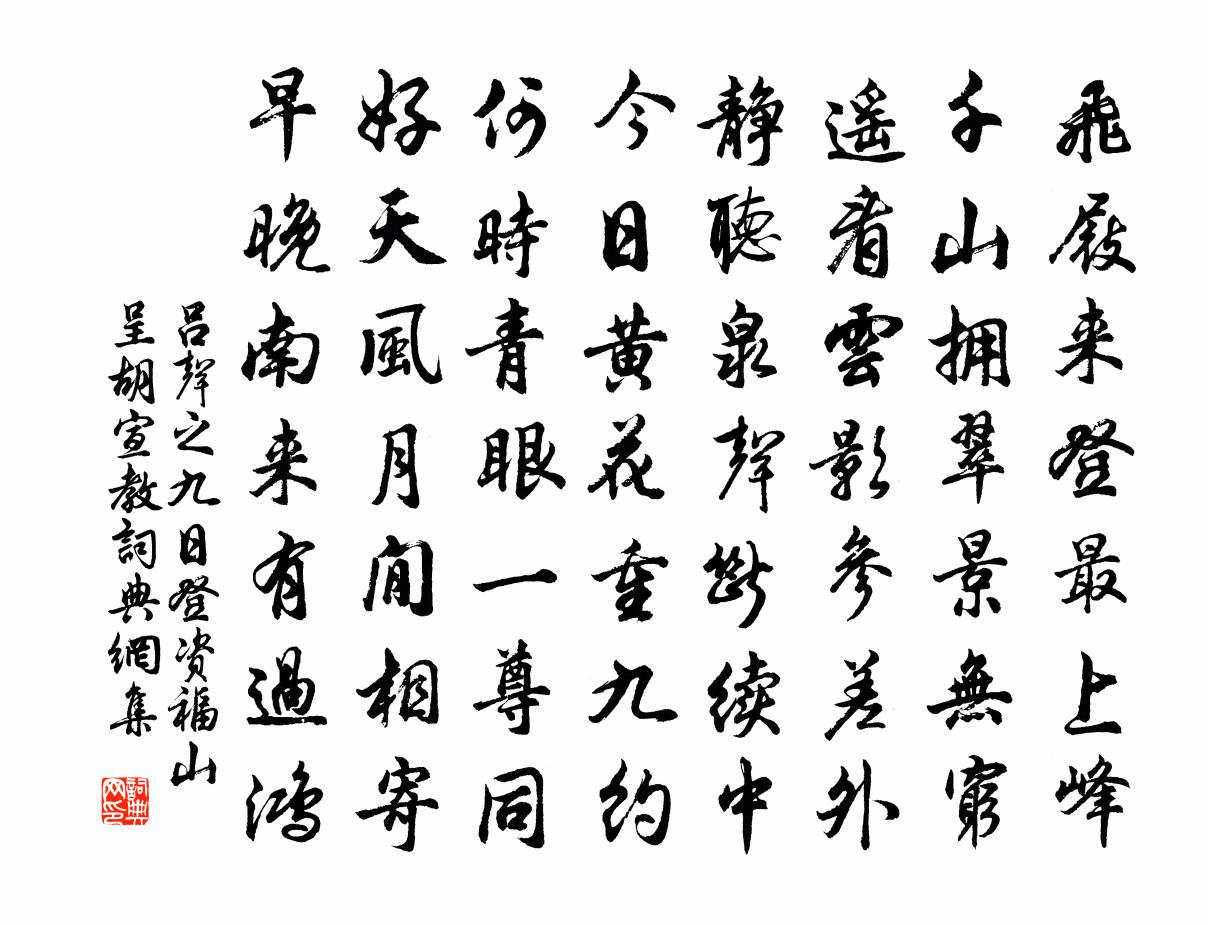 飛屐来登最上峰
千山拥翠景無窮
遥看雲影參差外
靜聽泉聲斷续中
今日黄花重九约
何時青眼一尊同
好天風月閒相寄
早晚南来有過鴻
吕聲之九日登资福山
呈胡宣教詞典網集
詞典网印